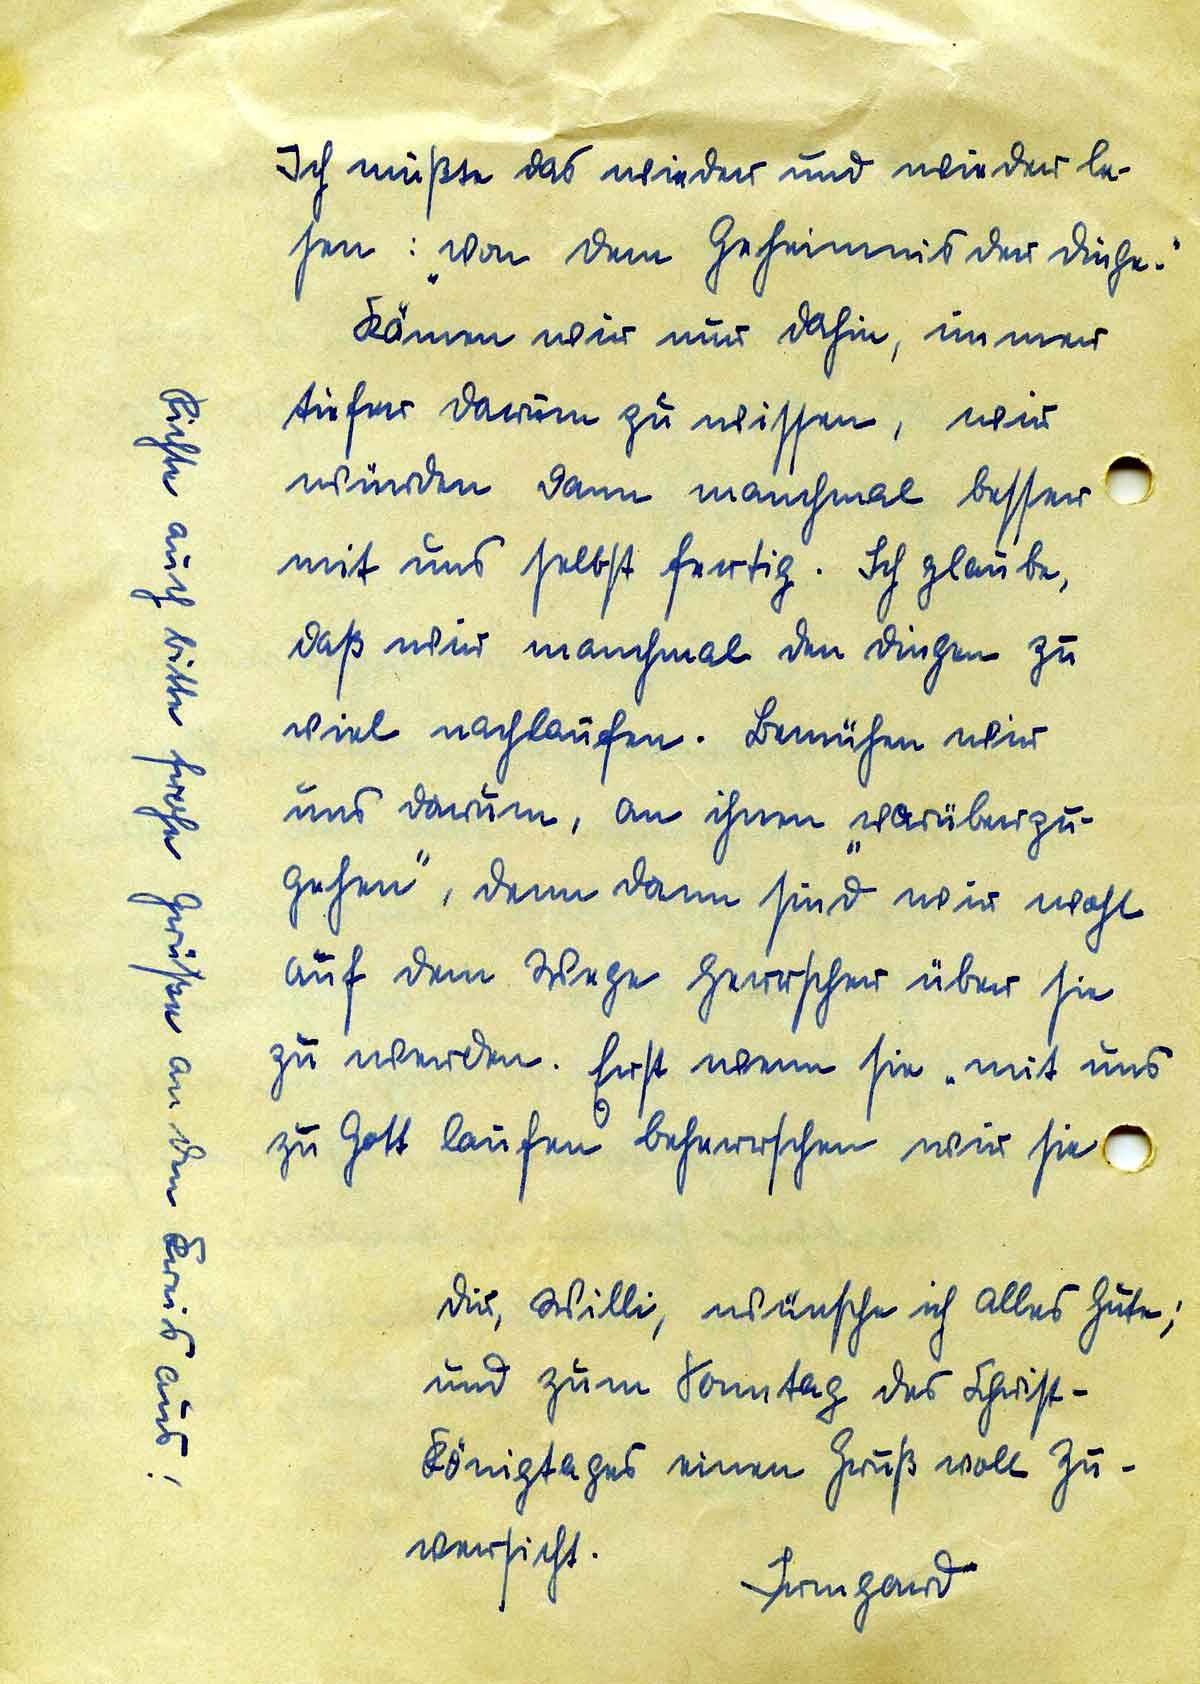 Ich müßte das wieder und wieder le-
sen : „von dem Geheimnis der Dinge."
Kämen wir nur dahin, immer
tiefer darum zu wissen, wir
würden dann manchmal besser
mit uns selbst fertig. Ich glaube,
daß wir manchmal den Dingen zu
viel nachlaufen. Bemühen wir
uns darum, an ihnen „vorüberzu-
gehen", denn dann sind wir wohl
auf dem Wege Herrscher über sie
zu werden. Erst wenn sie „mit uns
zu Gott laufen beherrschen wir sie
Dir, Willi, wünsche ich alles Gute;
und zum Sonntag des Christ-
Königtages einen Gruß voll Zu-
versicht.
Irmgard
Richte auch bitte frohe Grüße an den Kreis aus!